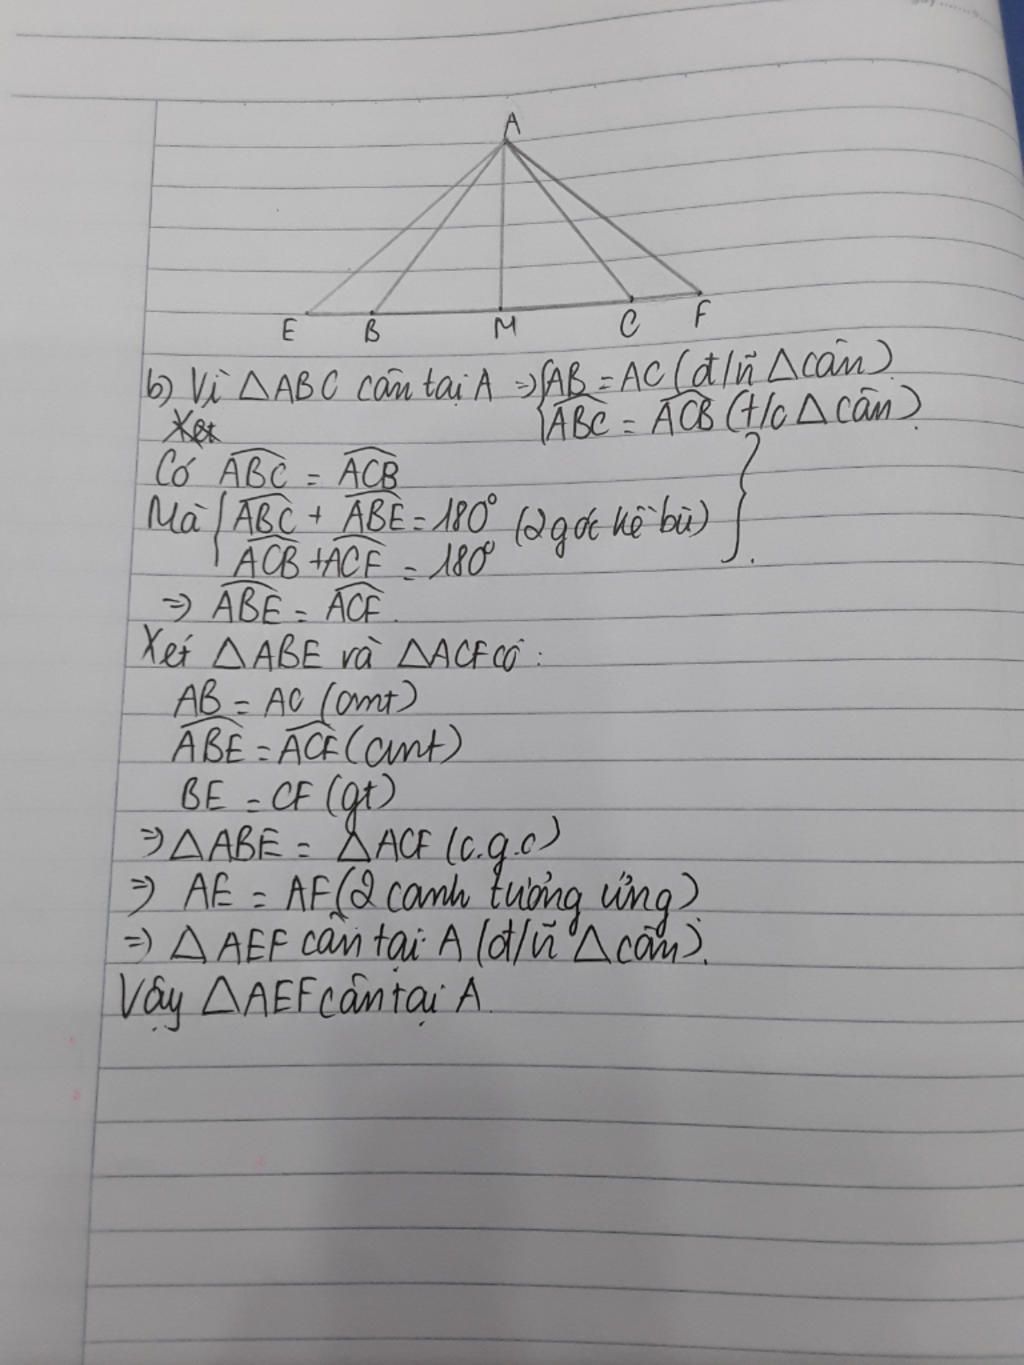 A
E B M C F
b) Vì △ABC cân tại A ⇒ { AB = AC (đ/n̄ △cân)
Xét
{ ABC = ACB (t/c △ cân)
Có ABC = ACB
Mà { ABC + ABE = 180° (2 góc kề bù) }
ACB + ACF = 180°
⇒ ABE = ACF.
Xét △ABE và △ACF có:
AB = AC (cmt)
ABE = ACF (cmt)
BE = CF (gt)
⇒ △ABE = △ACF (c.g.c)
⇒ AE = AF (2 cạnh tương ứng)
⇒ △AEF cân tại A (đ/n̄ △cân).
Vậy △AEF cân tại A.